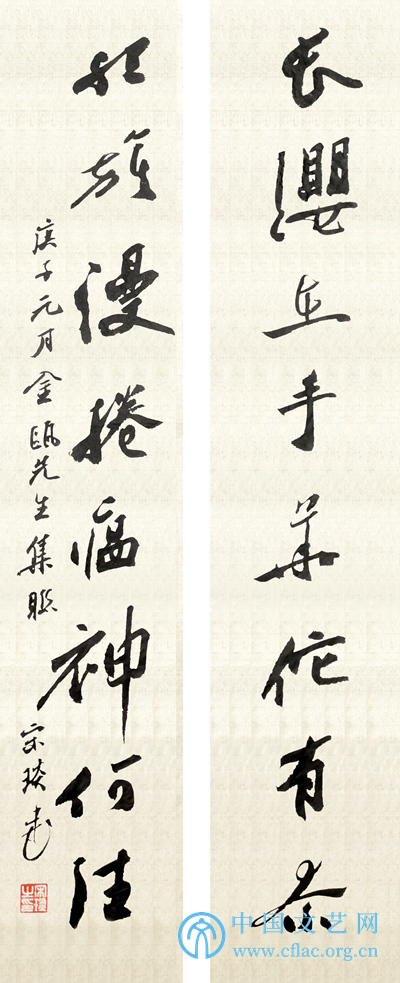 长缨在手华佗有
红旗漫捲瘟神何往
庚子元月金瓯先生集联
宋琰书
中国文艺网
www.cflac.org.cn